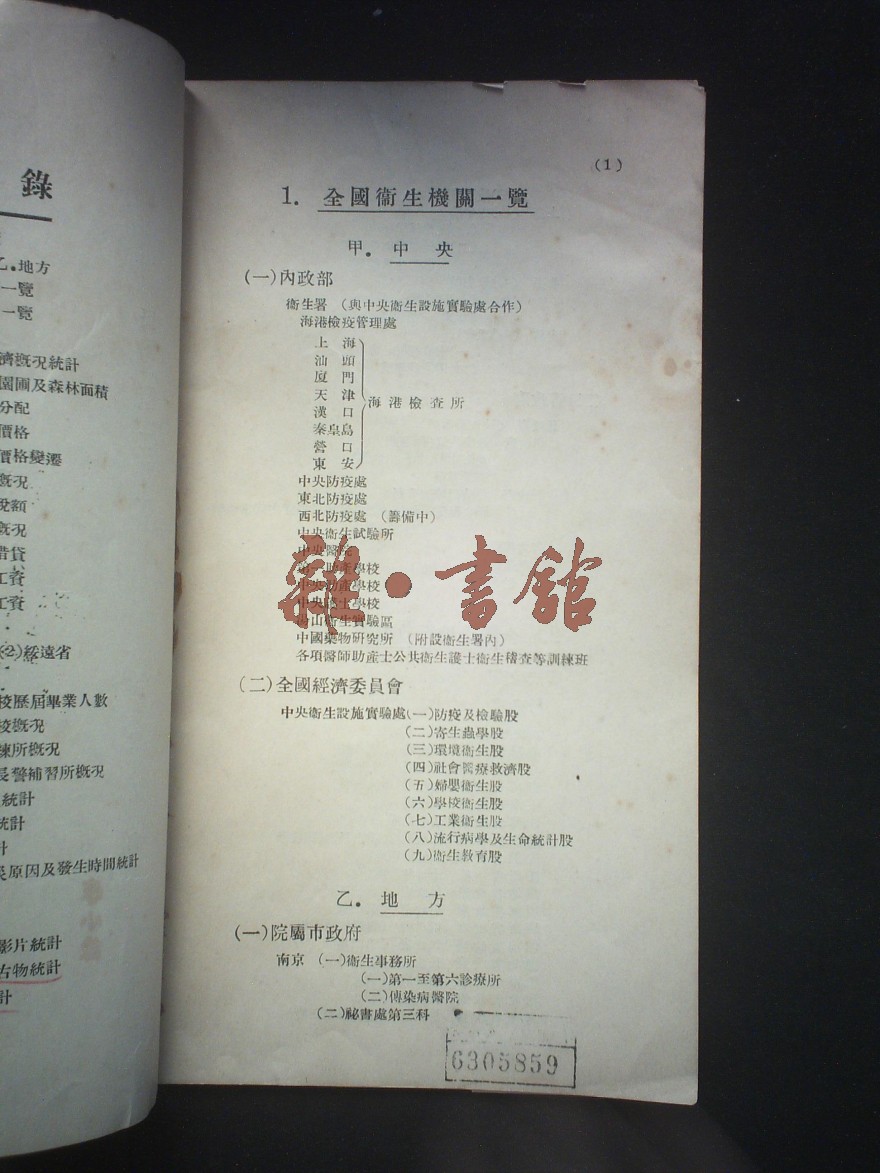 錄
乙．地方
一覽
一覽
濟概況統計
園圃及森林面積
分配
價格
價格變遷
概況
稅額
概況
借貸
工資
工資
(2)綏遠省
校歷屆畢業人數
校概況
練所概況
長警補習所概況
統計
統計
計
災原因及發生時間統計
影片統計
古物統計
計
(1)
1. 全國衞生機關一覽
甲．中央
(一)內政部
衞生署 (與中央衞生設施實驗處合作)
海港檢疫管理處
上海
汕頭
廈門
天津
漢口
秦皇島
營口
東安
海港檢查所
中央防疫處
東北防疫處
西北防疫處 (籌備中)
中央衞生試驗所
中央醫院
助產學校
中央助產學校
中央護士學校
山衞生實驗區
中國藥物研究所 (附設衞生署內)
各項醫師助產士公共衞生護士衞生稽查等訓練班
(二)全國經濟委員會
中央衞生設施實驗處(一)防疫及檢驗股
(二)寄生蟲學股
(三)環境衞生股
(四)社會醫療救濟股
(五)婦嬰衞生股
(六)學校衞生股
(七)工業衞生股
(八)流行病學及生命統計股
(九)衞生教育股
乙．地方
(一)院屬市政府
南京 (一)衞生事務所
(一)第一至第六診療所
(二)傳染病醫院
(二)祕書處第三科
6305859
雜·書館